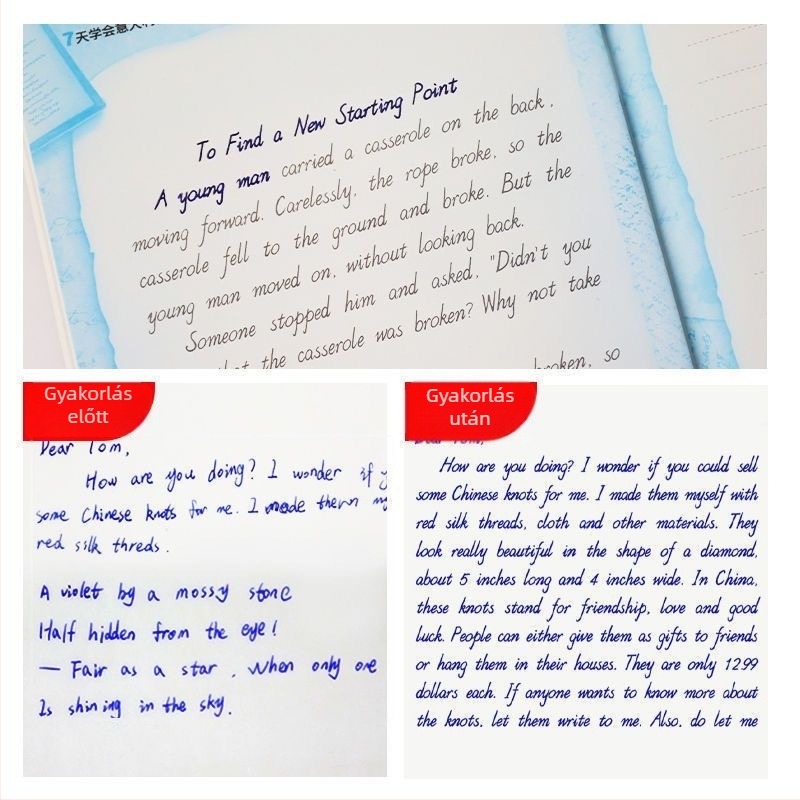 7天学会意大利
To Find a New Starting Point
A young man carried a casserole on the back,
moving forward. Carelessly, the rope broke, so the
casserole fell to the ground and broke. But the
young man moved on, without looking back.
Someone stopped him and asked, "Didn't you
the casserole was broken? Why not take
broken, so
Gyakorlás
előtt
Dear Tom,
How are you doing? I wonder if y
some Chinese knots for me. I made them my
red silk threds.
A violet by a mossy stone
Half hidden from the eye!
— Fair as a star, when only one
Is shining in the sky.
Gyakorlás
után
Dear Tom,
How are you doing? I wonder if you could sell
some Chinese knots for me. I made them myself with
red silk threads, cloth and other materials. They
look really beautiful in the shape of a diamond,
about 5 inches long and 4 inches wide. In China,
these knots stand for friendship, love and good
luck. People can either give them as gifts to friends
or hang them in their houses. They are only 12.99
dollars each. If anyone wants to know more about
the knots, let them write to me. Also, do let me